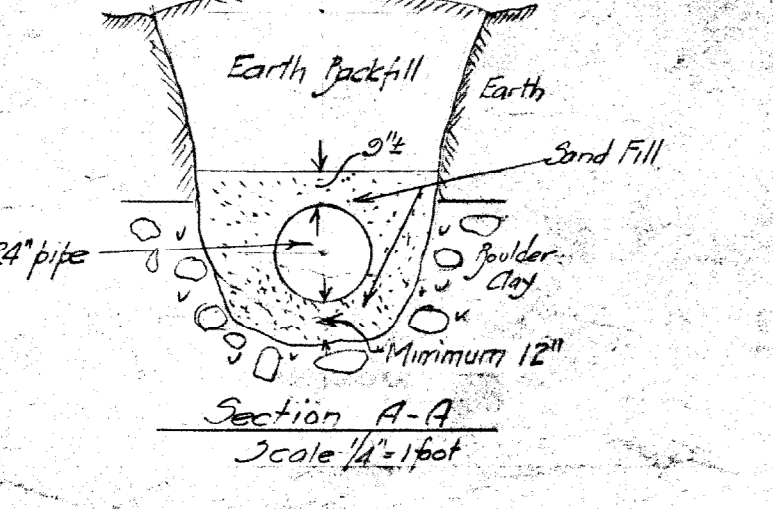 Earth Backfill
Earth
9"±
Sand Fill
24" pipe
Boulder
Clay
Minimum 12"
Section A-A
Scale 1/4" = 1 foot